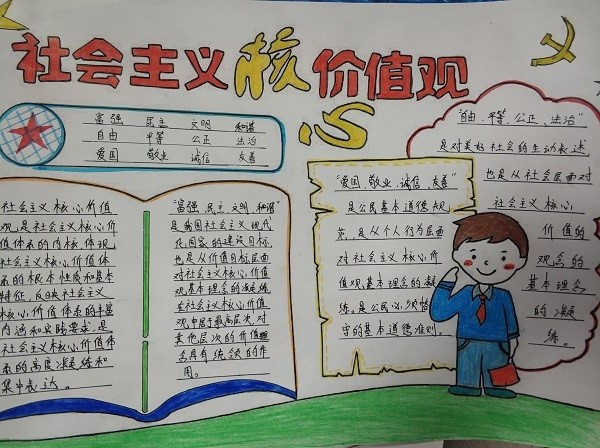 社会主义核心价值观
富强 民主 文明 和谐
自由 平等 公正 法治
爱国 敬业 诚信 友善
社会主义核心价值
观是社会主义核心价
值体系的内核,体现
社会主义核心价值体
系的根本性质和基本
特征,反映社会主义
核心价值体系的丰富
内涵和实践要求,是
社会主义核心价值体
系的高度凝练和
集中表达。
"富强、民主、文明、和谐"
是我国社会主义现代
化国家的建设目标,
也是从价值目标层面
对社会主义核心价值
观基本理念的凝练
在社会主义核心价值
观中居于最高层次,对
其他层次的价值理
念具有统领的作
用。
"爱国、敬业、诚信、友善"
是公民基本道德规
范,是从个人行为层面
对社会主义核心价
值观基本理念的凝
练,是公民必须恪
守的基本道德准则。
"自由、平等、公正、法治"
是对美好社会的生动表述
也是从社会层面对
社会主义核心
价值的
观念的
基本理念
的凝
练。